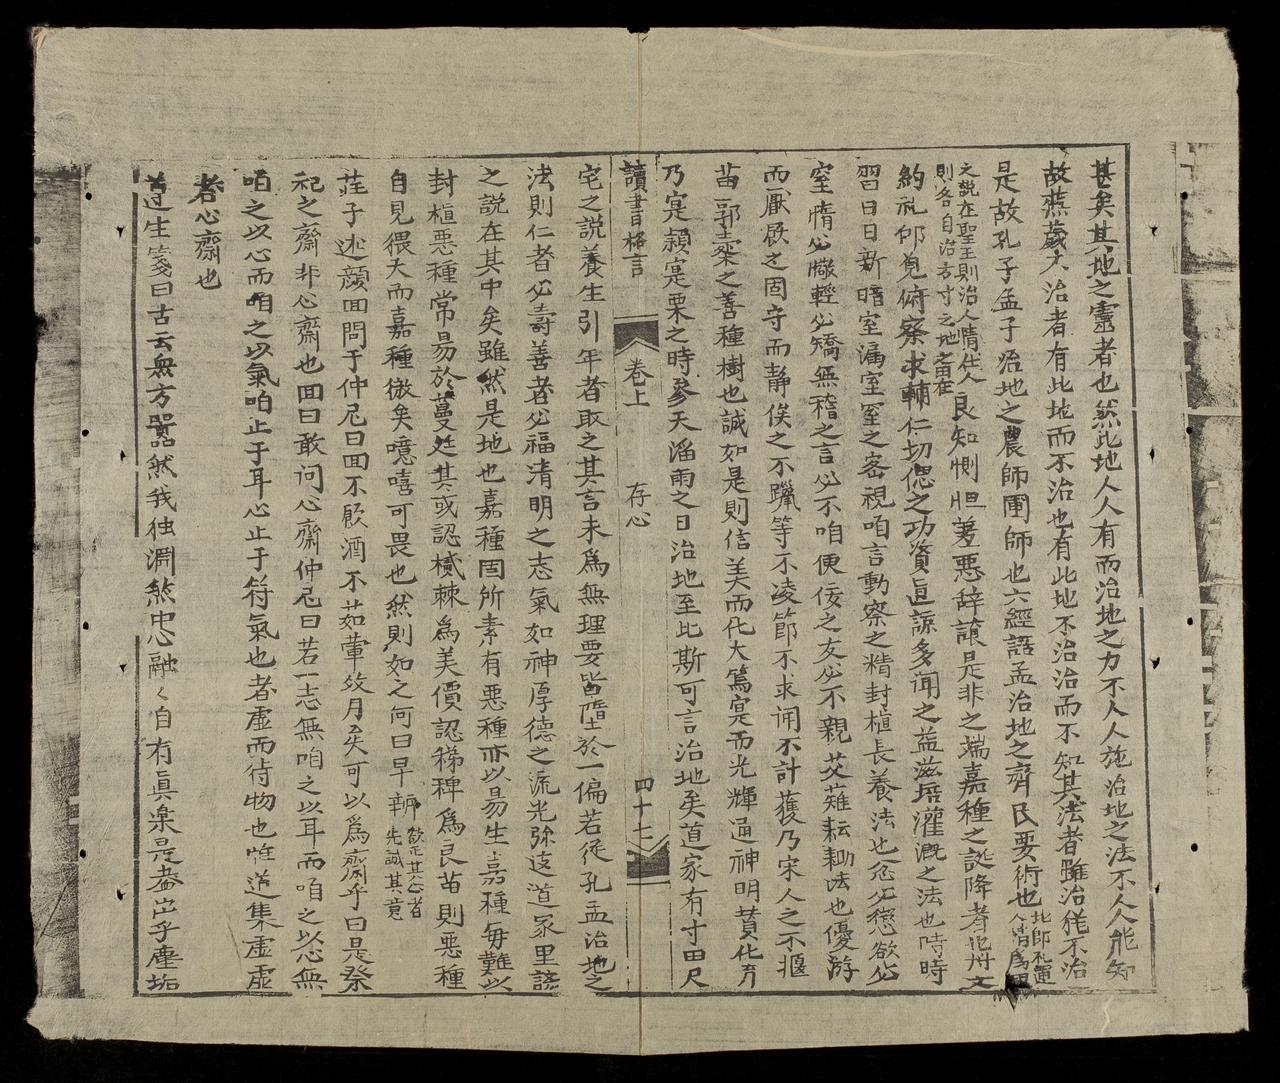 甚矣其地之靈者也然此地人人有而治地之力不人人施治地之法不人人能知
故蕪薉大治者有此地而不治也有此地不治治而不知其法者雖治猶不治
是故孔子孟子治地之農師圃師也六經語孟治地之齊民要術也此即礼運人情為田
之説在聖王則治人情在人則各自治方寸之地之田在良知惻怛羞惡辞讓是非之端嘉種之誕降者也
約礼仰覓俯察求輔仁切偲之功資直諒多闻之益滋培灌溉之法也時時
習日日新暗室漏室室之客視咱言動察之精封植長養法也忿必懲欲必
窒惰必儆輕必矯無稽之言必不咱便佞之友必不親芟薙耘耡法也優游
而厭厭之固守而静俟之不躐等不凌節不求闻不計獲乃宋人之不揠
苗郭槖之善種樹也誠如是則信美而化大篤寔而光輝通神明賛化育
乃寔穎寔栗之時參天滛雨之日治地至此斯可言治地矣道家有寸田尺
讀書格言 卷上 存心 四十七
宅之説養生引年者取之其言未爲無理要皆墮於一偏若從孔孟治地之
法則仁者必壽善者必福清明之志氣如神厚德之流光弥遠道家里諺
之説在其中矣雖然是地也嘉種固所素有惡種亦以易生嘉種每難以
封植惡種常易於蔓延其或認樲棘爲美價認稊稗爲良苗則惡種
自見猥大而嘉種微矣噫嘻可畏也然則如之何曰早辨辨欲正其心者先誠其意
莊子述顔回問于仲尼曰回不飲酒不茹葷数月矣可以爲齋乎曰是祭
祀之齋非心齋也回曰敢问心齋仲尼曰若一志無咱之以耳而咱之以心無
咱之以心而咱之以氣咱止于耳心止于符氣也者虛而待物也惟道集虛虛
者心齋也
遵生箋曰古云無方嚻然我独淵然中心融〻自有真樂是盖出乎塵垢